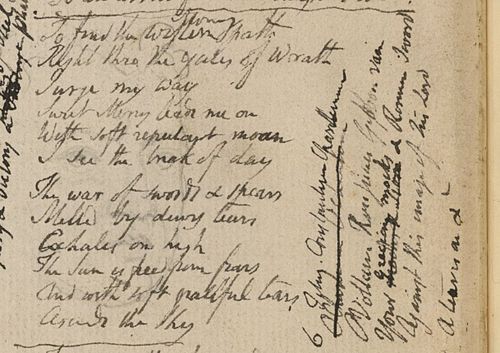 Morning
To find the Western path
Right thro the Gates of Wrath
I urge my way
Sweet Mercy leads me on
With soft repentant moan
I see the break of day
The war of swords & spears
Melted by dewy tears
Exhales on high
The Sun is freed from fears
And with soft grateful tears
Ascends the sky
6 Titus Constantine Charlemaine
O Voltaire Rousseau Gibbon vain
Your Grecian mocks & Roman sword
Against this image of his Lord
A tear is an &